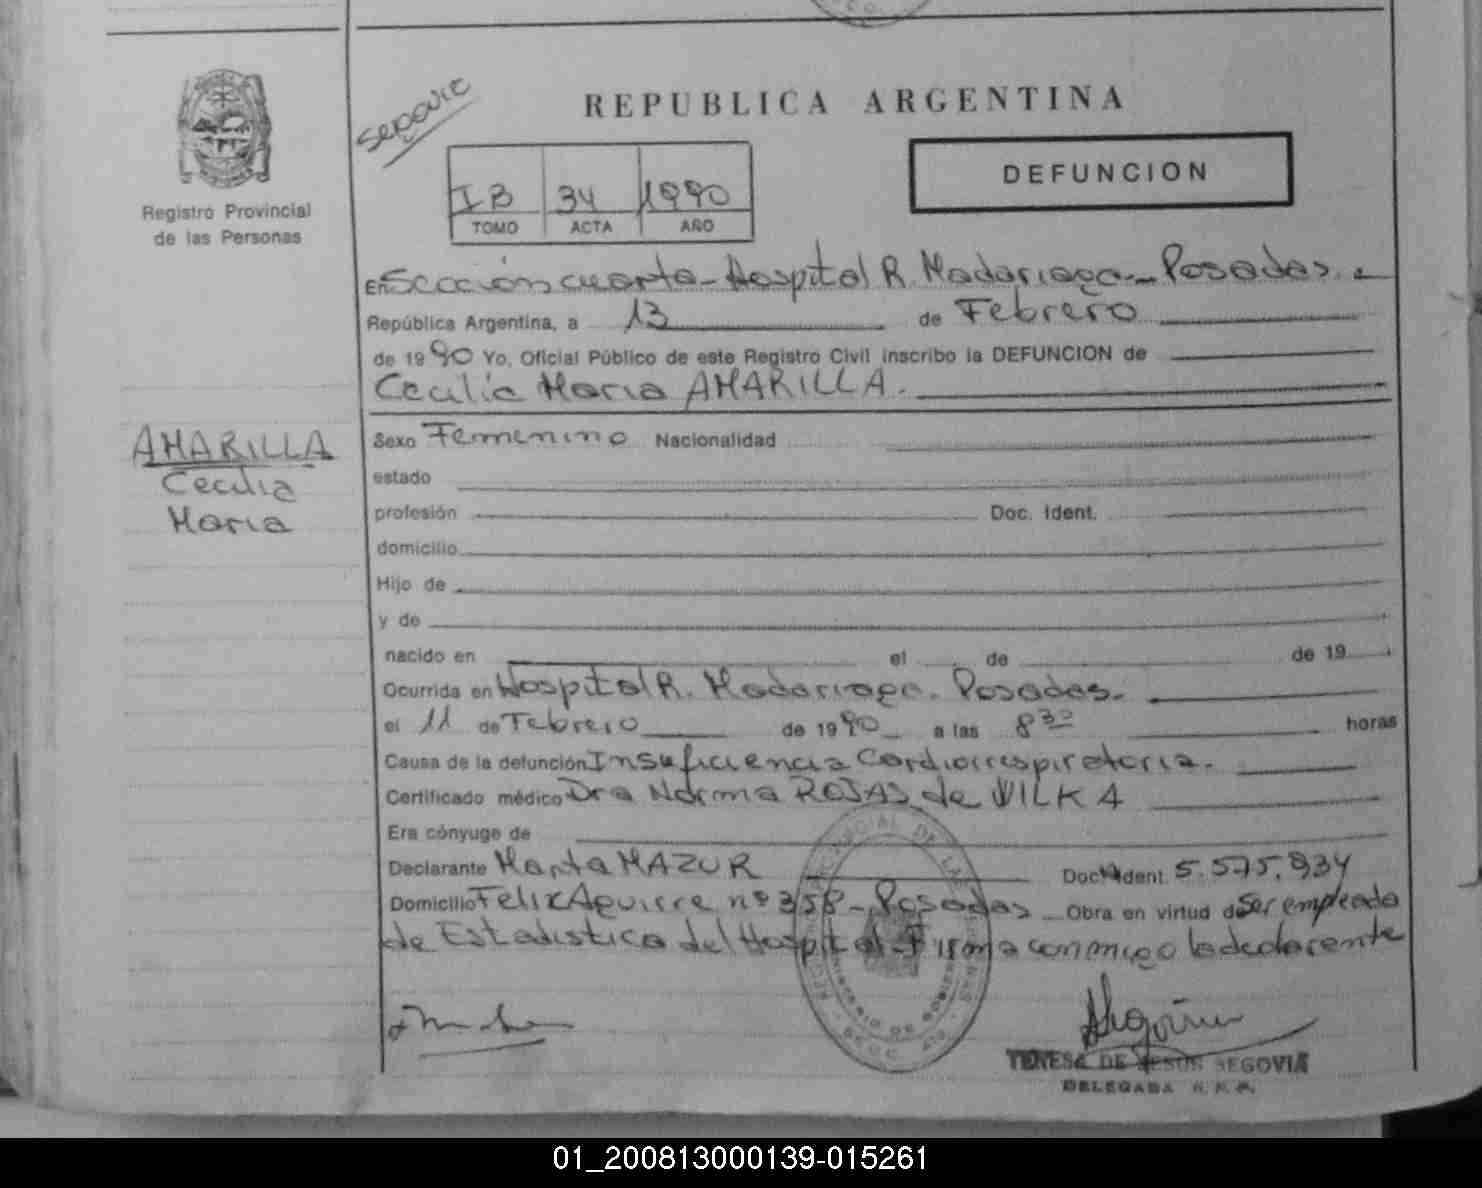 REPUBLICA ARGENTINA
DEFUNCION
Registro Provincial
de las Personas
I B 34 1990
TOMO ACTA AÑO
En Sección cuarta - Hospital R. Madariaga - Posadas. -
República Argentina, a 13 de Febrero
de 1990 Yo, Oficial Público de este Registro Civil inscribo la DEFUNCION de
Cecilia Maria AMARILLA.
AMARILLA
Cecilia
Maria
Sexo Femenino Nacionalidad
estado
profesión Doc. Ident.
domicilio
Hijo de
y de
nacido en el de de 19
Ocurrida en Hospital R. Madariaga. Posadas.
el 11 de Febrero de 1990 a las 8 30 horas
Causa de la defunción Insuficiencia Cardiorrespiratoria.
Certificado médico Dra Norma ROJAS de VILKA
Era cónyuge de
Declarante Marta MAZUR Doc. Ident. 5.575.934
Domicilio Felix Aguirre nº 358 - Posadas Obra en virtud de Ser empleada
de Estadistica del Hospital - Firma conmigo la declarente
TERESA DE JESUS SEGOVIA
DELEGADA R. P. P.
01_200813000139-015261